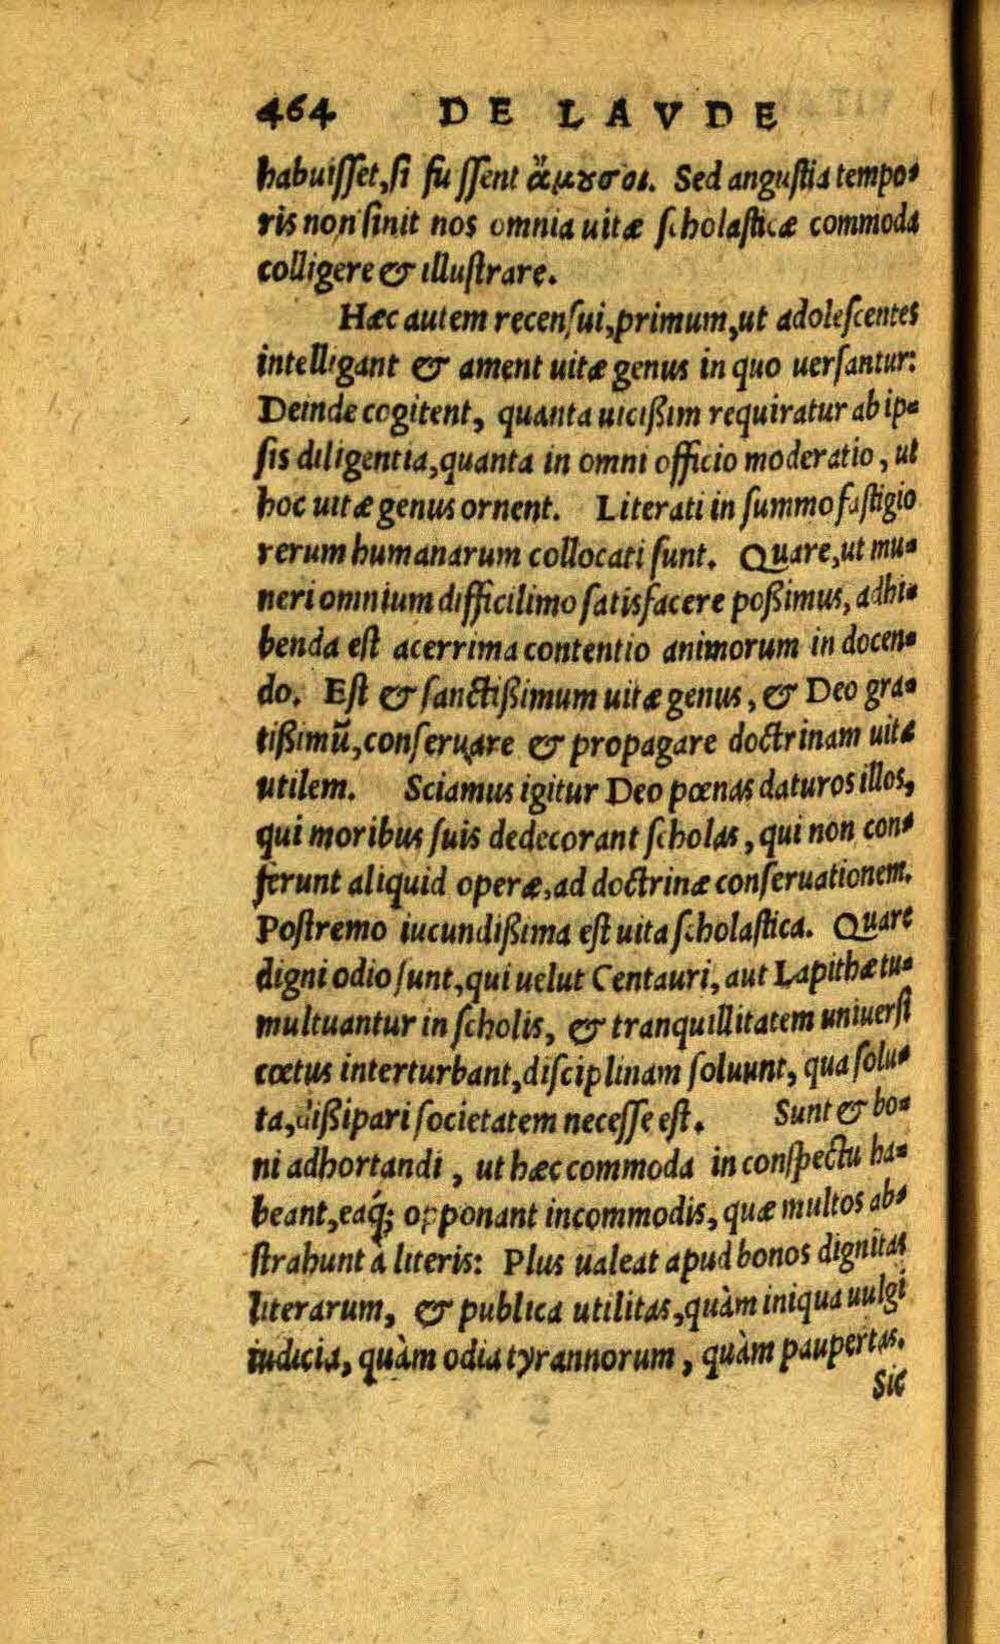 464 DE LAVDE
habuisset, si fuissent ἄμουσοι. Sed angustia tempo-
ris non sinit nos omnia uitæ scholasticæ commoda
colligere & illustrare.
Hæc autem recensui, primum, ut adolescentes
intelligant & ament uitæ genus in quo uersantur:
Deinde cogitent, quanta uicißim requiratur ab ip-
sis diligentia, quanta in omni officio moderatio, ut
hoc uitæ genus ornent. Literati in summo fastigio
rerum humanarum collocati sunt. Quare, ut mu-
neri omnium difficilimo satisfacere poßimus, adhi-
benda est acerrima contentio animorum in docen-
do. Est & sanctißimum uitæ genus, & Deo gra-
tißimũ, conseruare & propagare doctrinam uitæ
utilem. Sciamus igitur Deo pœnas daturos illos,
qui moribus suis dedecorant scholas, qui non con-
ferunt aliquid operæ, ad doctrinæ conseruationem.
Postremo iucundißima est uita scholastica. Quare
digni odio sunt, qui uelut Centauri, aut Lapithæ tu-
multuantur in scholis, & tranquillitatem uniuersi
cœtus interturbant, disciplinam soluunt, qua solu-
ta, dißipari societatem necesse est. Sunt & bo-
ni adhortandi, ut hæc commoda in conspectu ha-
beant, eaq́; opponant incommodis, quæ multos ab-
strahunt à literis: Plus ualeat apud bonos dignitas
literarum, & publica utilitas, quàm iniqua uulgi
iudicia, quàm odia tyrannorum, quàm paupertas.
Sic